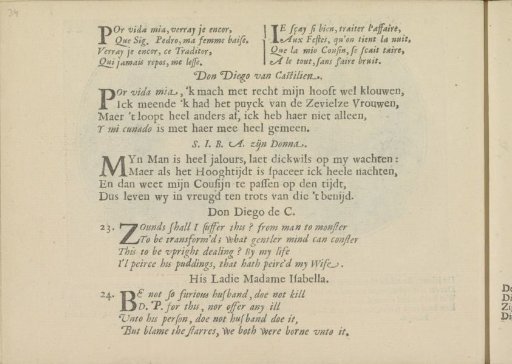 34
POr vida mia, verray je encor,
Que Sig. Pedro, ma femme baise,
Verray je encor, ce Traditor,
Qui jamais repos, me lesse.
IE sçay si bien, traiter l'affaire,
Aux Festes, qu'on tient la nuit,
Que la mio Cousin, se scait taire,
A le tout, sans faire bruit.
Don Diego van Castilien.
POr vida mia, 'k mach met recht mijn hooft wel klouwen,
Ick meende 'k had het puyck van de Zevielze Vrouwen,
Maer 't loopt heel anders af, ick heb haer niet alleen,
T mi cunado is met haer mee heel gemeen.
S. I. B. A. zijn Donna.
MYn Man is heel jalours, laet dickwils op my wachten:
Maer als het Hooghtijdt is spaceer ick heele nachten,
En dan weet mijn Cousijn te passen op den tijdt,
Dus leven wy in vreugd ten trots van die 't benijd.
Don Diego de C.
23. ZOunds shall I suffer this? from man to monster
To be transform'd; what gentler mind can conster
This to be upright dealing? By my life
I'l peirce his puddings, that hath peirc'd my Wife.
His Ladie Madame Isabella.
24. BE not so furious husband, doe not kill
D. P. for this, nor offer any ill
Unto his person, doe not husband doe it,
But blame the starres, We both were borne unto it.